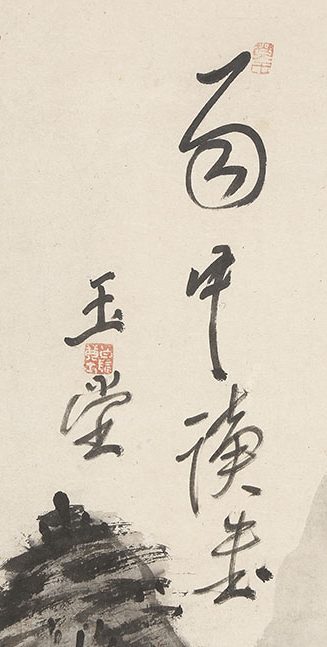 雨中讀書
玉堂